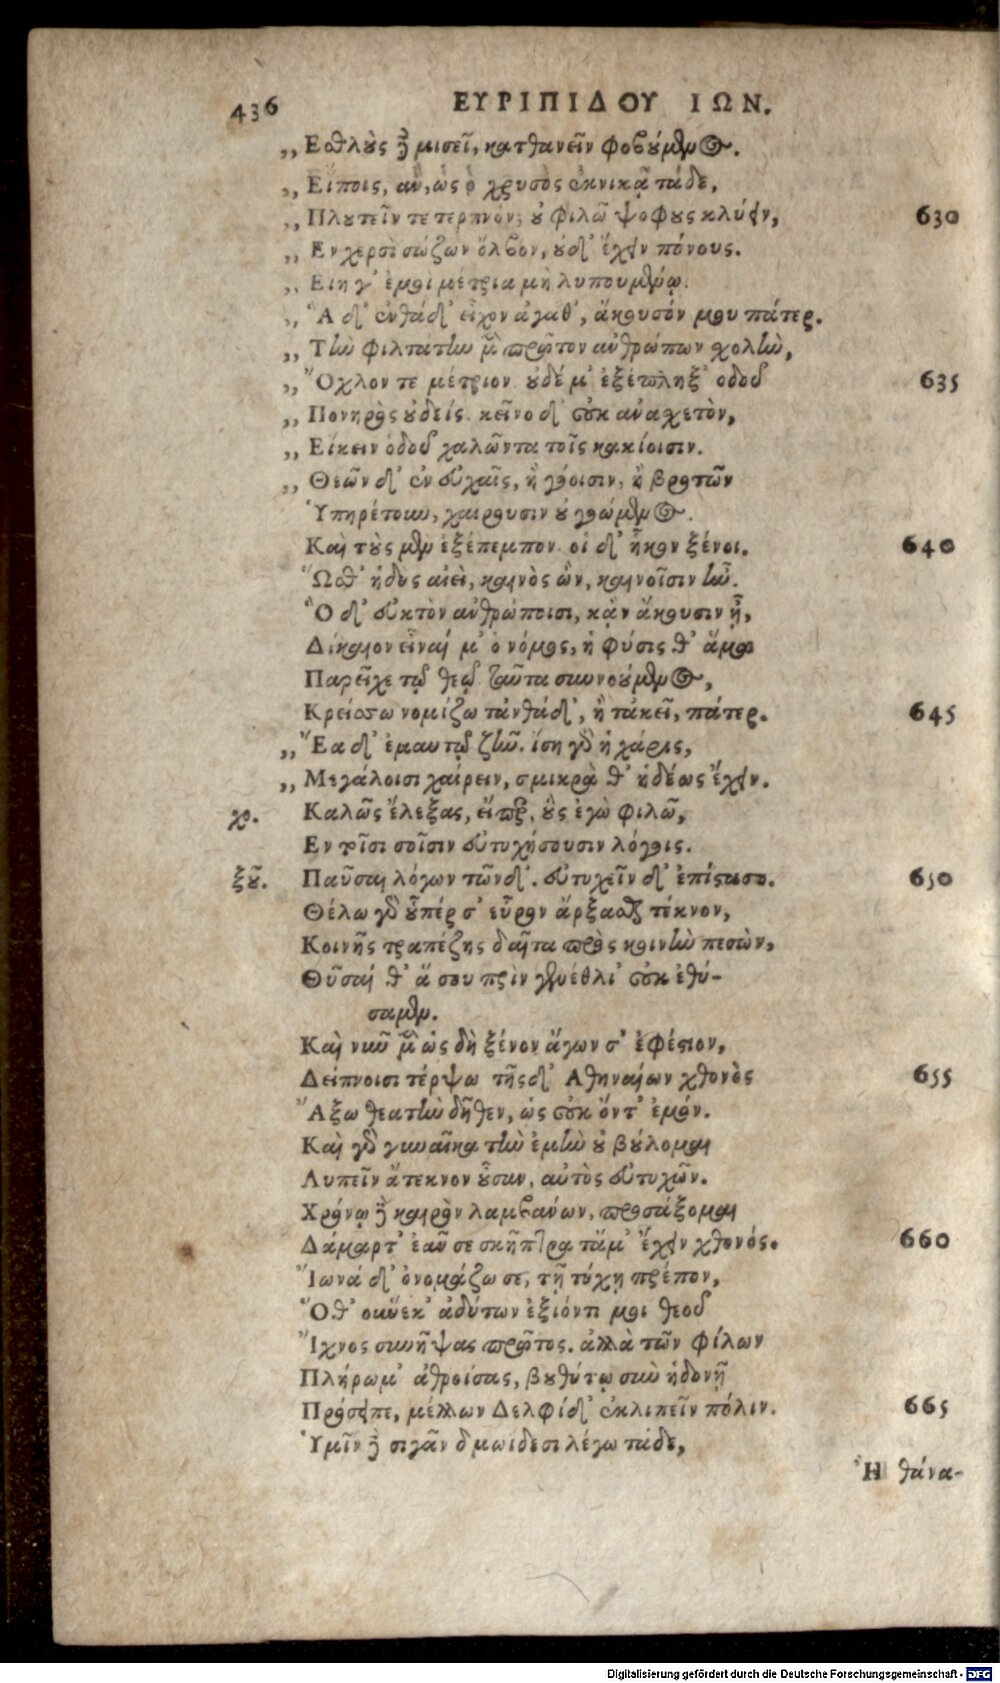 436
ΕΥΡΙΠΙΔΟΥ ΙΩΝ.
„ Εσθλοὺς δὲ μισεῖ, κατθανεῖν φοβούμενος.
„ Είποις, αν, ὡς ὁ χρυσὸς ἐκνικᾷ τάδε,
„ Πλουτεῖν τε τερπνόν; οὐ φιλῶ ψοφους κλύειν, 630
„ Εν χερσὶ σώζων ὄλβον, οὐδ' ἔχειν πόνους.
„ Ειη γ' ἐμοὶ μέτρια μὴ λυπουμένῳ.
„ Ἃ δ' ἐνθάδ' εἶχον ἀγαθ', ἄκουσόν μου πάτερ.
„ Τὴν φιλτάτην μὲν πρῶτον ανθρώπων χολὴν,
„ Ὄχλον τε μέτριον. οὐδέ μ' ἐξέπληξ' οδοῦ 635
„ Πονηρὸς οὐδείς. κεῖνο δ' οὐκ ανασχετὸν,
„ Είκειν ὁδοῦ χαλῶντα τοῖς κακίοισιν.
„ Θεῶν δ' ἐν εὐχαῖς, ἢ γόοισιν, ἢ βροτῶν
Ὑπηρέτουν, χαίρουσιν οὐ γοώμενος.
Καὶ τοὺς μὲν ἐξέπεμπον. οἱ δ' ἧκον ξένοι. 640
Ὥσθ' ἡδὺς αἰεὶ, καινὸς ὢν, καινοῖσιν ἦν.
Ὃ δ' εὐκτὸν ανθρώποισι, κἂν ἄκουσιν ᾖ,
Δίκαιον εἶναί μ' ὁ νόμος, ἡ φύσις θ' ἅμα
Παρεῖχε τῷ θεῷ. ταῦτα συννοούμενος,
Κρείσσω νομίζω τἀνθάδ', ἢ τἀκεῖ, πάτερ. 645
„ Ἔα δ' ἐμαυτῷ ζῆν. ίση γὰρ ἡ χάρις,
„ Μεγάλοισι χαίρειν, σμικρὰ θ' ἡδέως ἔχειν.
χο. Καλῶς ἔλεξας, εἴπερ, οὓς ἐγὼ φιλῶ,
Εν τοῖσι σοῖσιν εὐτυχήσουσιν λόγοις.
ξοῦ. Παῦσαι λόγων τῶνδ'. εὐτυχεῖν δ' ἐπίστασο. 650
Θέλω γὰρ οὗπέρ σ' εὗρον ἄρξασθαι τέκνον,
Κοινῆς τραπέζης δαῖτα πρὸς κοινὴν πεσὼν,
Θῦσαί θ' ἅ σου πρὶν γενέθλι' οὐκ ἐθύ-
σαμεν.
Καὶ νῦν μὲν ὡς δὴ ξένον ἄγων σ' ἐφέστιον,
Δείπνοισι τέρψω τῆς δ' Αθηναίων χθονὸς 655
Ἄξω θεατὴν δῆθεν, ὡς οὐκ ὄντ' ἐμόν.
Καὶ γὰρ γυναῖκα τὴν ἐμὴν οὐ βούλομαι
Λυπεῖν ἄτεκνον οὖσαν, αὐτὸς εὐτυχῶν.
Χρόνῳ δὲ καιρὸν λαμβανων, προσάξομαι
Δάμαρτ' ἐᾶν σε σκῆπτρα τἄμ' ἔχειν χθονός. 660
Ἴωνά δ' ὀνομάζω σε, τῇ τύχῃ πρέπον,
Ὅθ' οὕνεκ' ἀδύτων ἐξιόντι μοι θεοῦ
Ἴχνος συνῆψας πρῶτος. ἀλλὰ τῶν φίλων
Πλήρωμ' ἀθροίσας, βουθύτῳ σὺν ἡδονῇ
Πρόσειπε, μέλλων Δελφίδ' ἐκλιπεῖν πόλιν. 665
Ὑμῖν δὲ σιγᾶν δμωίδεσι λέγω τάδε,
Ἢ θάνα-
Digitalisierung gefördert durch die Deutsche Forschungsgemeinschaft - DFG